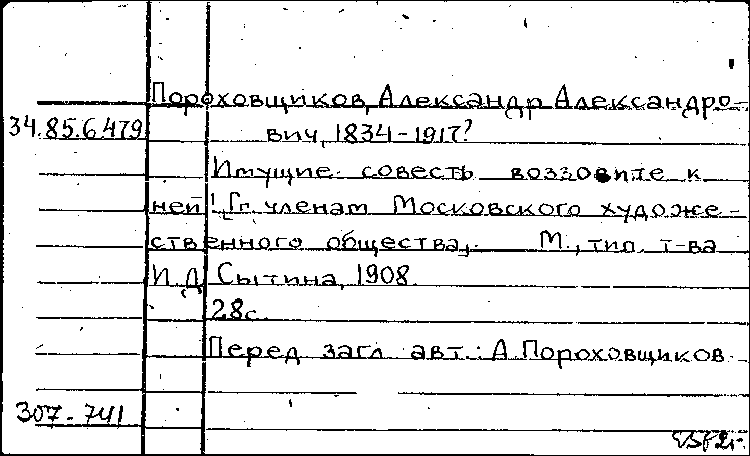 Пороховщиков, Александр Александро-
34.85.6479 вич, 1834-1917?
Имущие совесть воззовите к
ней! [Гг. членам Московского художе-
ственного общества]. М., тип. т-ва
И.Д. Сытина, 1908.
28с.
Перед загл. авт.: А. Пороховщиков.
307-741